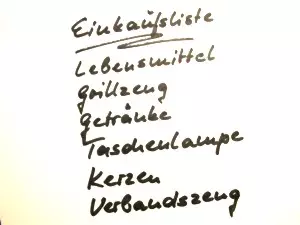 Einkaufsliste
Lebensmittel
Grillzeug
Getränke
Taschenlampe
Kerzen
Verbandszeug